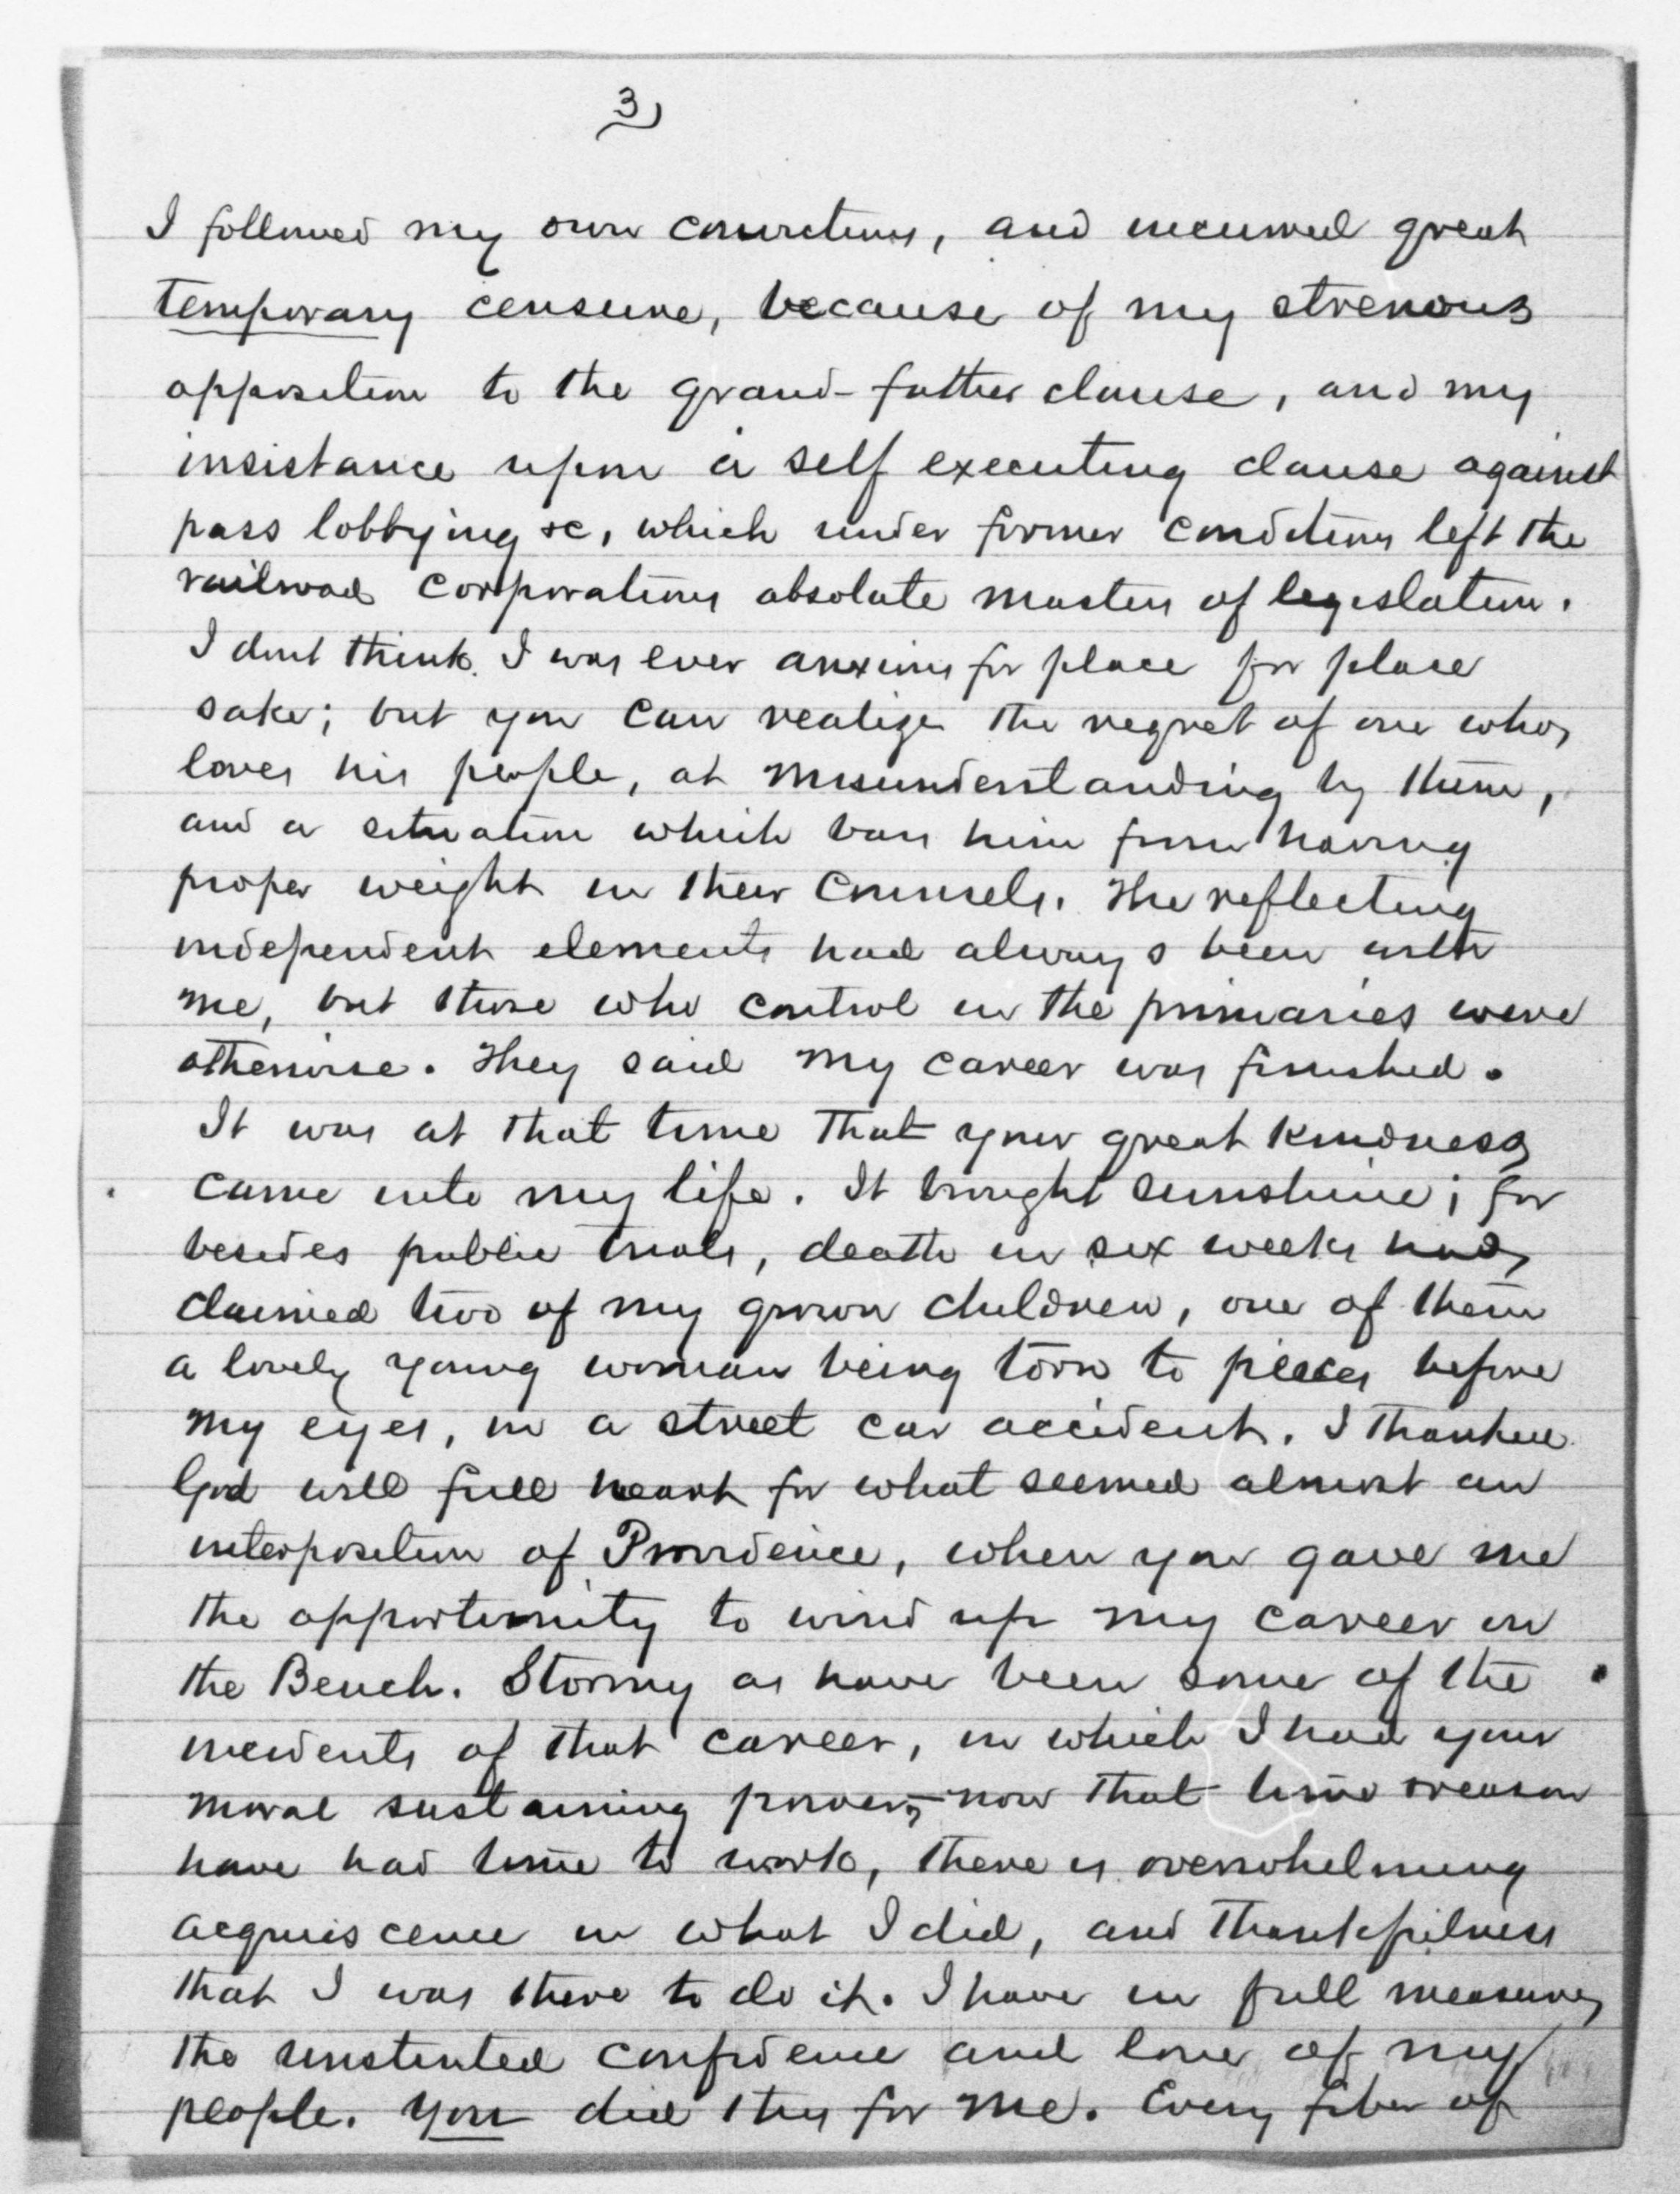 3)
I followed my own convictions, and incurred great
temporary censure, because of my strenous
opposition to the grand-father clause, and my
insistance upon a self executing clause against
pass lobbying &c, which under former conditions left the
railroad corporations absolute masters of legislation.
I dont think I was ever anxious for place for place
sake; but you can realize the regret of one who,
loves his people, at misunderstanding by them,
and a situation which bars him from having
proper weight in their counsels. The reflecting
independent elements had always been with
me, but those who control in the primaries were
otherwise. They said my career was finished.
It was at that time that your great kindness
came into my life. It brought sunshine; for
besides public trials, death in six weeks had,
claimed two of my grown children, one of them
a lovely young woman being torn to pieces before
my eyes, in a street car accident. I thanked
God with full heart for what seemed almost an
interposition of Providence, when you gave me
the opportunity to wind up my career on
the Bench. Stormy as have been some of the
incidents of that career, in which I had your
moral sustaining power, now that time & reason
have had time to work, there is overwhelming
acquiscence in what I did, and thankfulness
that I was there to do it. I have in full measure,
the unstinted confidence and love of my
people. You did this for me. Every fiber of